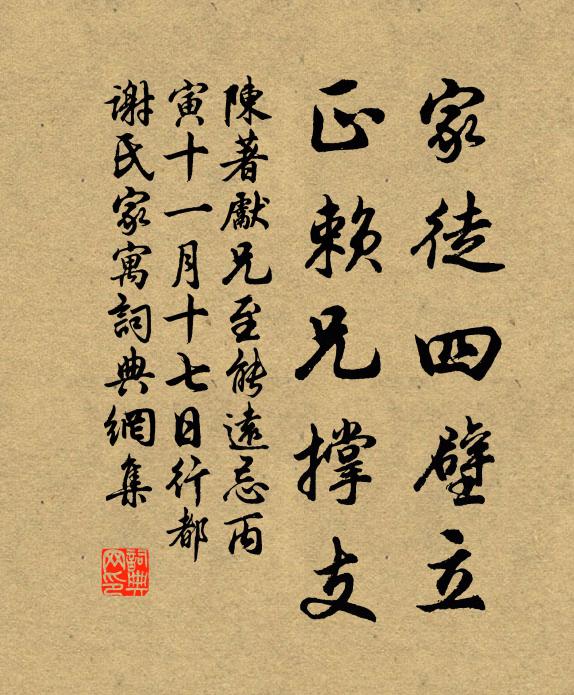 家徒四壁立
正賴兄撐支
陳著獻兄至能遠忌丙
寅十一月十七日行都
謝氏家寓詞典網集
詞典
网印